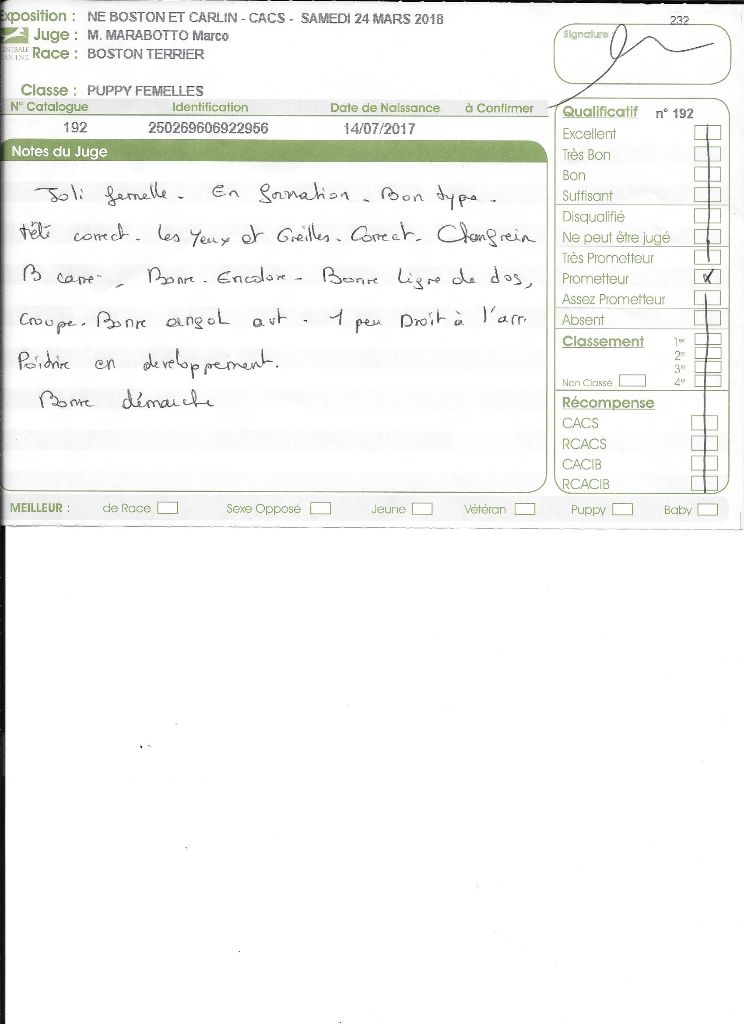 Exposition : NE BOSTON ET CARLIN - CACS - SAMEDI 24 MARS 2018
232
Juge : M. MARABOTTO Marco
Race : BOSTON TERRIER
Signature
Classe : PUPPY FEMELLES
N° Catalogue Identification Date de Naissance à Confirmer
192 250269606922956 14/07/2017
Notes du Juge
Joli femelle - En formation - Bon type -
tété correct - les yeux et Oreilles - Correct -
B carré - Bonne - Encolure - Bonne ligne de dos,
Croupe - Bonne angol avt - 1 peu Droit à l'arr.
Poidrine en developpement.
Bonne démarche
Qualificatif n° 192
Excellent
Très Bon
Bon
Suffisant
Disqualifié
Ne peut être jugé
Très Prometteur
Prometteur X
Assez Prometteur
Absent
Classement 1er
2e
3e
Non Classé 4e
Récompense
CACS
RCACS
CACIB
RCACIB
MEILLEUR : de Race Sexe Opposé Jeune Vétéran Puppy Baby